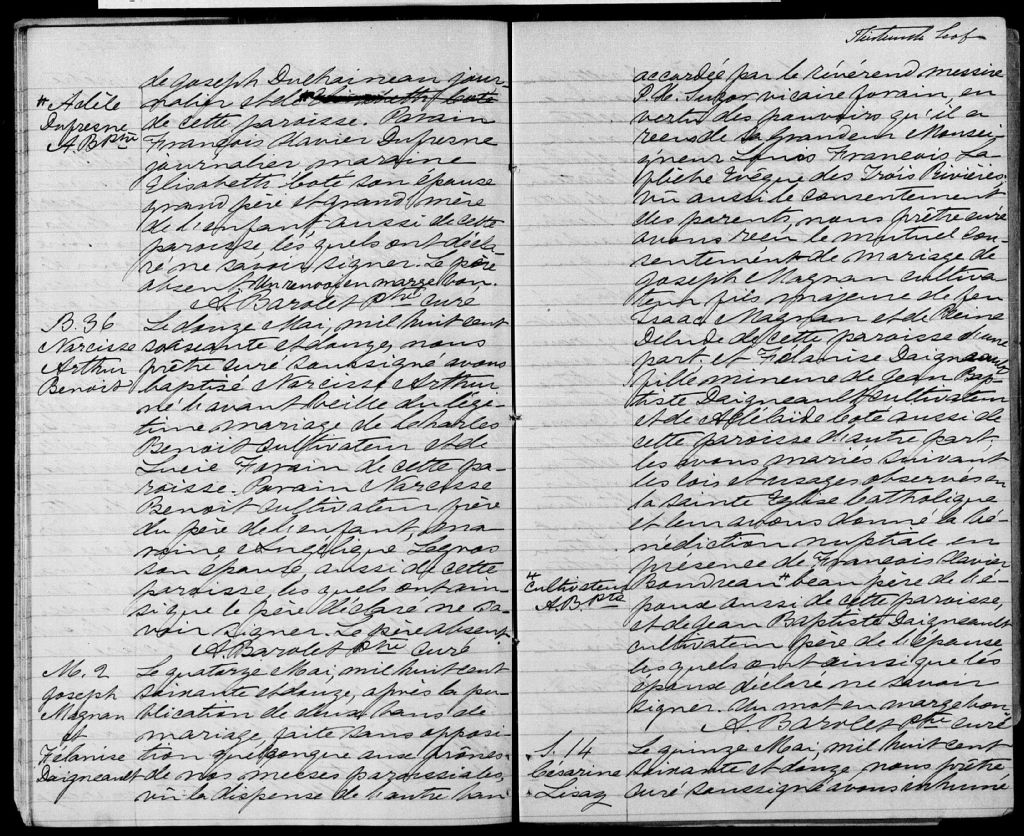 de Joseph Duchaineau jour-
nalier et de Elisabeth Coté
" Adèle
Dufresne
A.B. Ptre
de cette paroisse. Parain
François Xavier Dufresne
journalier maraine
Elisabeth Coté son épouse
grand père et grand mère
de l'enfant, aussi de cette
paroisse, les quels ont décla-
ré ne savoir signer. Le père
absent. Un renvoi en marge bon.
A. Barolet Ptre curé
B. 36
Narcisse
Arthur
Benoit
Le douze Mai, mil huit cent
soixante et douze, nous
prêtre curé soussigné avons
baptisé Narcisse Arthur
né l'avant veille du légi-
time mariage de Charles
Benoit cultivateur et de
Lucie Forain de cette pa-
roisse. Parain Narcisse
Benoit cultivateur frère
du père de l'enfant, ma-
raine Angélique Legros
son épouse aussi de cette
paroisse, les quels ont ain-
si que le père déclaré ne sa-
voir signer. Le père absent.
A. Barolet Ptre curé
M. 2
Joseph
Magnan
et
Félanise
Daigneault
Le quatorze Mai, mil huit cent
soixante et douze, après la pu-
blication de deux bans de
mariage faite sans opposi-
tion quelconque aux prônes
de nos messes paroissiales,
vû la dispense de l'autre ban
Thirteenth leaf
accordée par le révérend messire
P. de vicaire forain, en
vertu des pouvoirs qu'il a
reçus de sa grandeur Monsei-
gneur Louis François La-
flèche Evêque des Trois Rivières,
vu aussi le consentement
des parents, nous prêtre curé
avons reçu le mutuel con-
sentement de mariage de
Joseph Magnan cultiva-
teur fils majeur de feu
Isaac Magnan et de Reine
de cette paroisse d'une
part, et Félanise Daigneault
fille mineure de Jean Bap-
tiste Daigneault cultivateur
et de Adélaide Coté aussi de
cette paroisse d'autre part,
les avons mariés suivant
les lois et usages observés en
la sainte Eglise Catholique
et leur avons donné la bé-
nédiction nuptiale en
présence de François Xavier
" Cultivateur
A.B. Ptre
Boudreau " beau père de l'é-
poux aussi de cette paroisse,
et de Jean Baptiste Daigneault
cultivateur père de l'épouse
les quels ont ainsi que les
époux déclaré ne savoir
signer. Un mot en marge bon.
A. Barolet Ptre curé
S. 14
Césarine
Le quinze Mai, mil huit cent
soixante et douze, nous prêtre
curé soussigné avons inhumé